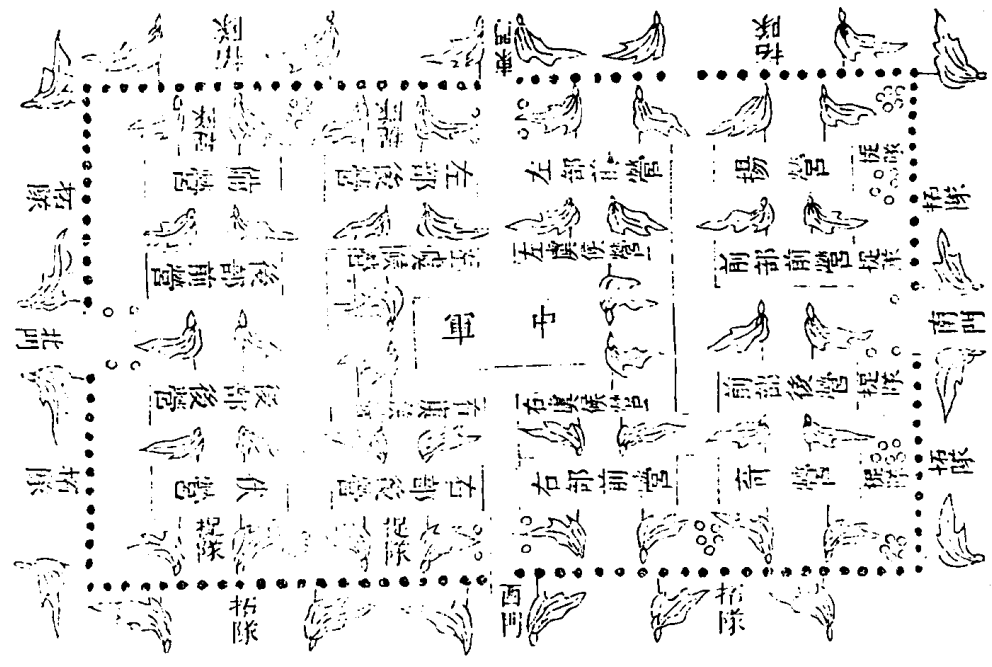 招隊
東門
招隊
捉隊
捉隊
備營
左部後營
左部前營
揚營
捉隊
招隊
招隊
後部前營
左虞候營
左虞候營
前部前營
捉隊
北門
中
軍
南門
後部後營
右虞候營
前部後營
捉隊
招隊
伏營
右部後營
右部前營
奇營
捉隊
招隊
捉隊
捉隊
招隊
西門
招隊